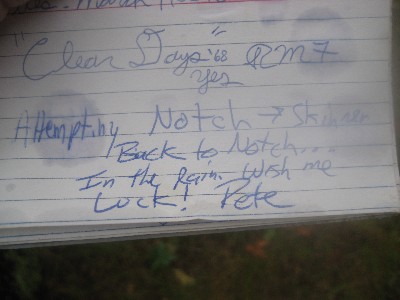 "Clear Days" '68 RMF
Yes
Attempting Notch → Skinner
Back to Notch...
In the Rain. Wish me
Luck! Pete